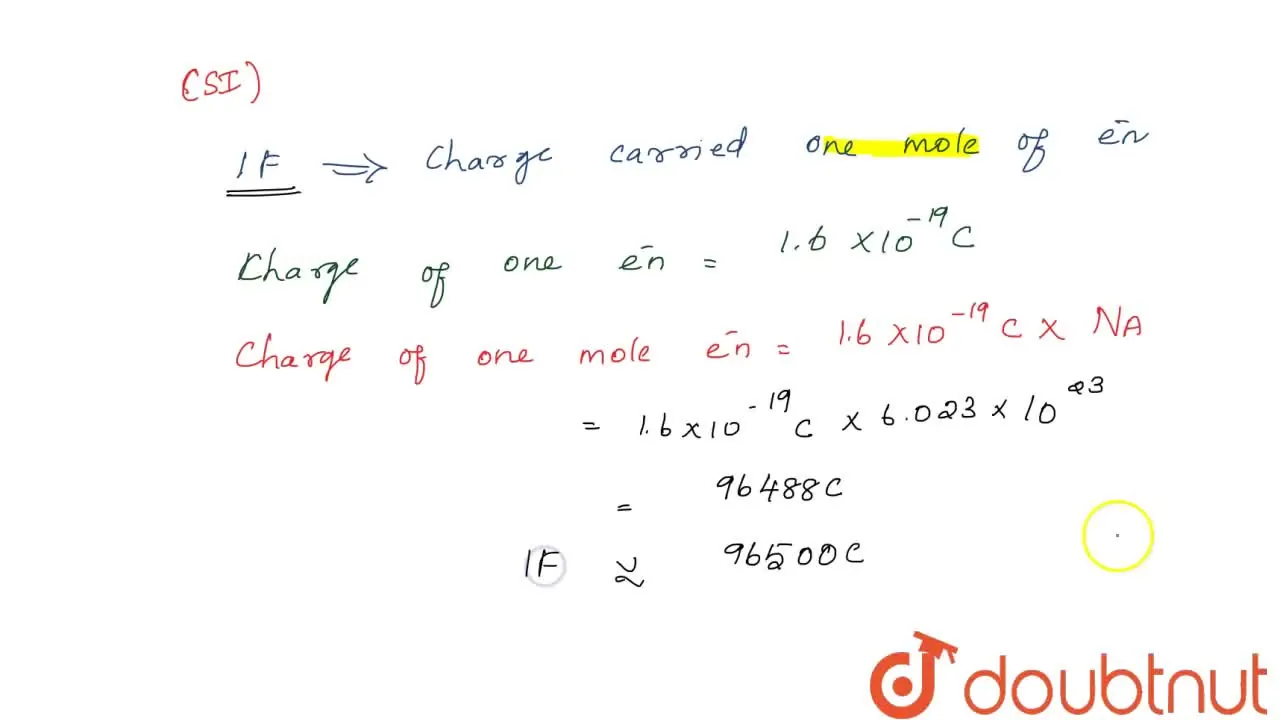 (SI)
1F ⟹ Charge carried one mole of ēn
Charge of one ēn = 1.6 × 10⁻¹⁹ C
Charge of one mole ēn = 1.6 × 10⁻¹⁹ C × NA
= 1.6 × 10⁻¹⁹ C × 6.023 × 10²³
= 96488 C
1F ≈ 96500 C
doubtnut